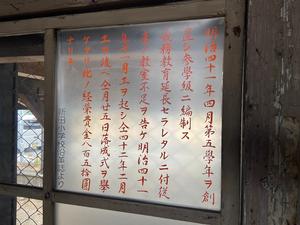 明治四十一年四月第五學年ヲ創
置シ参學級ニ編制ス
義務教育延長セラレタルニ付従
来ノ教室不足ヲ告ケ明治四十一
年十一月工ヲ起シ仝四十二年二月
工ヲ竣ヘ仝月廿五日落成式ヲ擧
ケタリ此ノ経営費金八百五拾圓
ナリキ